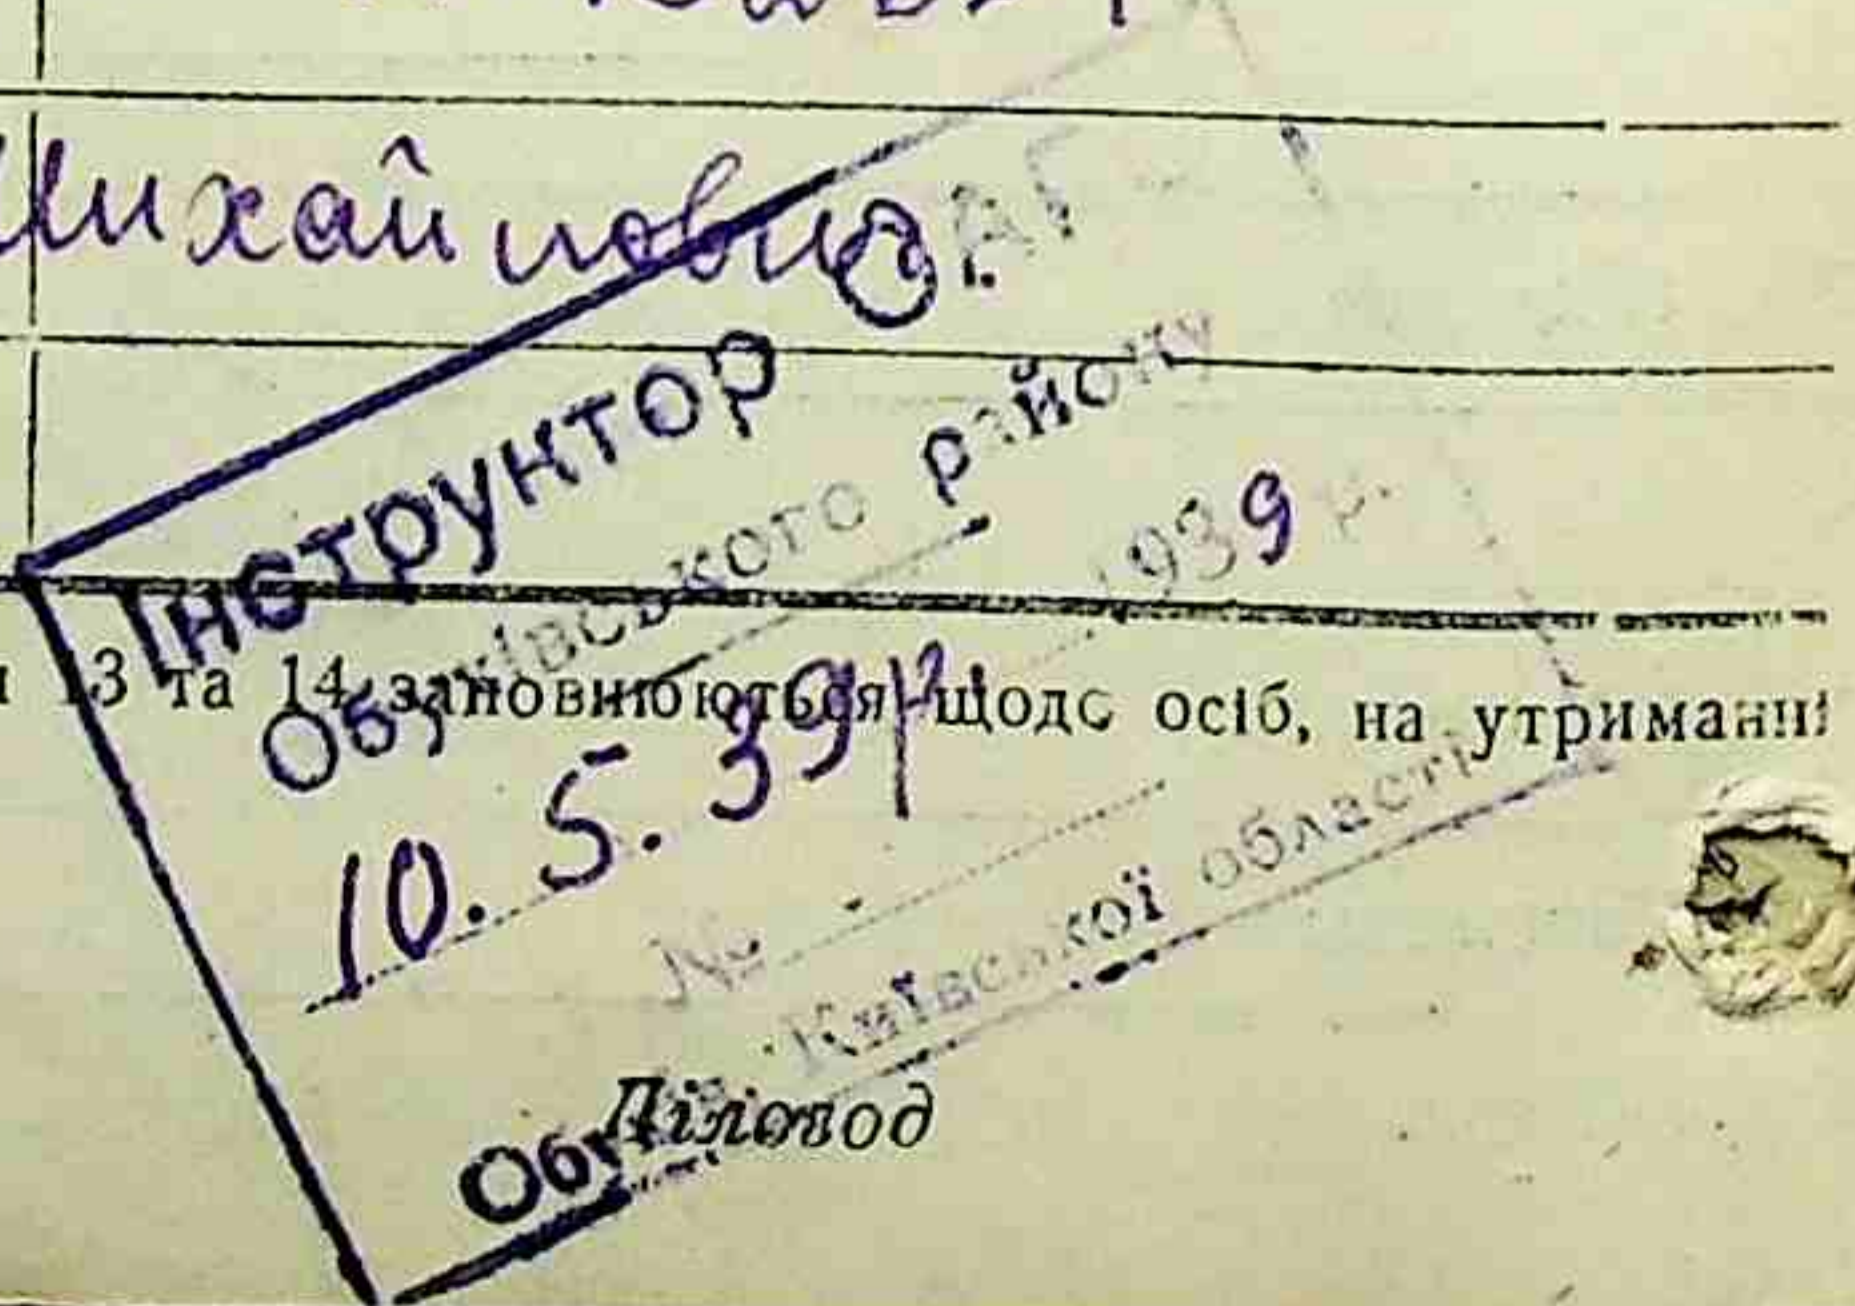 Михайловно
Інструктор О.АГ
Обухівського району
1939 р.
13 та 14 заповнюються щодо осіб, на утриманні
10. 5. 39 р
№
Київської області
Діловод